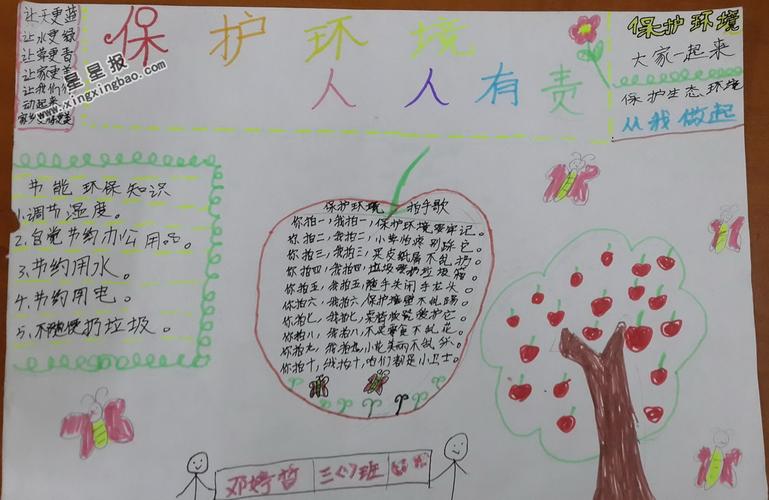 让天更蓝
让水更绿
让草更香
让家更美
让我们
动起来
星星报
www.xingxingbao.com
保护环境
人人有责
保护环境
大家一起来
保护生态环境
从我做起
节能环保知识
1.调节湿度。
2.自觉节约办公用品。
3.节约用水。
4.节约用电。
5.不随便扔垃圾。
保护环境 拍手歌
你拍一,我拍一,保护环境要牢记。
你拍二,我拍二,小草怕来别踩它。
你拍三,我拍三,果皮纸屑不乱扔。
你拍四,我拍四,垃圾要扔垃圾箱。
你拍五,我拍五,随手关闭水龙头。
你拍六,我拍六,保护墙壁不乱踢。
你拍七,我拍七,爱护它。
你拍八,我拍八,不买零食不乱花。
你拍九,我拍九,
你拍十,我拍十,咱们都是小卫士。
邓婷哲 三(7)班